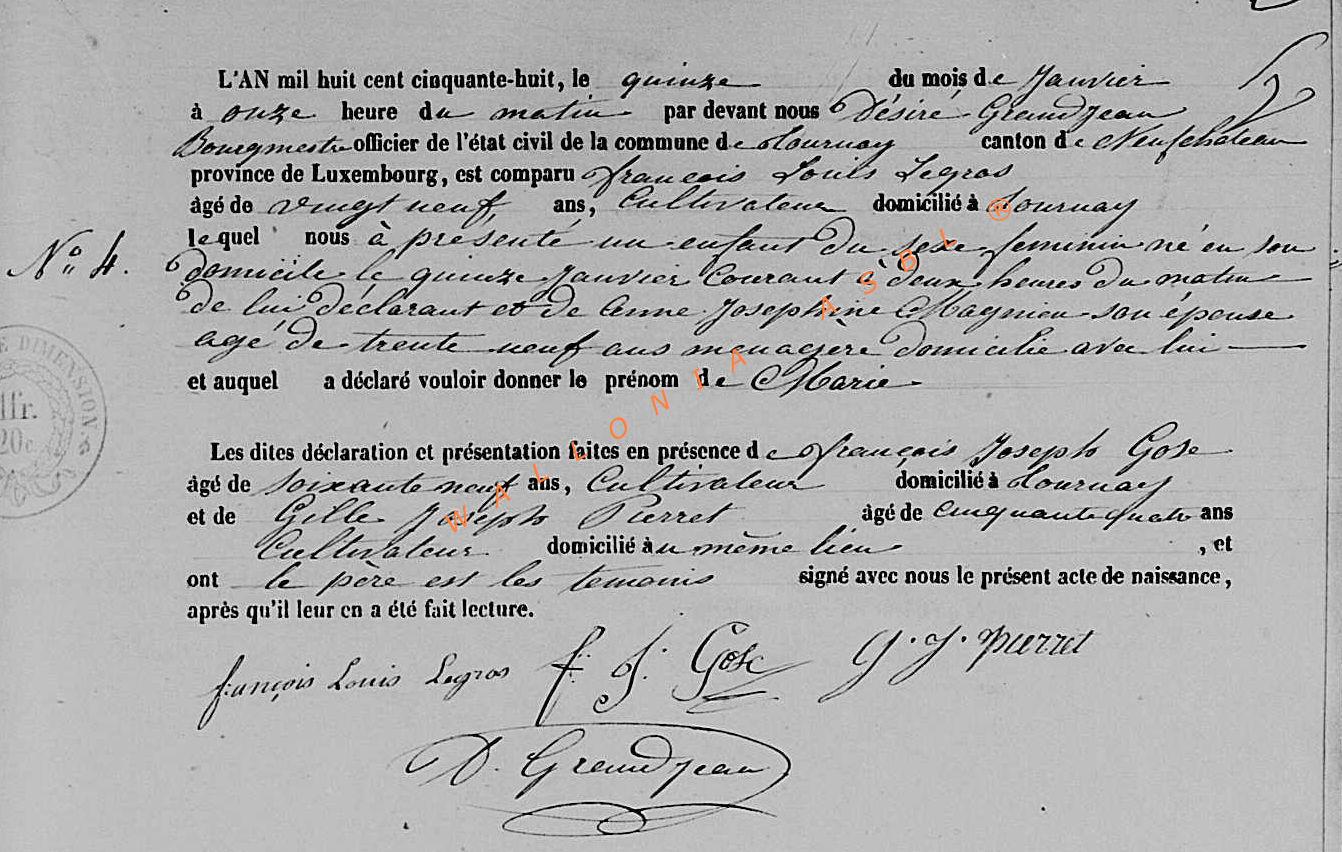 L'AN mil huit cent cinquante-huit, le quinze du mois de Janvier
à onze heure du matin par devant nous Désiré Grandjean
Bourgmestre officier de l'état civil de la commune de Tournay canton de Neufchateau
province de Luxembourg, est comparu françois Louis Legros
âgé de vingt neuf ans, Cultivateur domicilié à Tournay
lequel nous à présenté un enfant du sexe feminin né en son
No 4.
domicile le quinze Janvier courant à deux heures du matin
de lui déclarant et de Anne Josephine Magnien son épouse
agé de trente neuf ans menagère domicilié avec lui
et auquel a déclaré vouloir donner le prénom de Marie
E DIMENSION
1fr.
20c
Les dites déclaration et présentation faites en présence de françois Joseph Gose
âgé de soixante neuf ans, Cultivateur domicilié à Tournay
et de Gille Joseph Pierret âgé de cinquante quatre ans
Cultivateur domicilié au même lieu , et
ont le père est les temoins signé avec nous le présent acte de naissance,
après qu'il leur en a été fait lecture.
françois Louis Legros f. J. Gose G. J. Pierret
D. Grandjean
WALLONIA ASBL ®